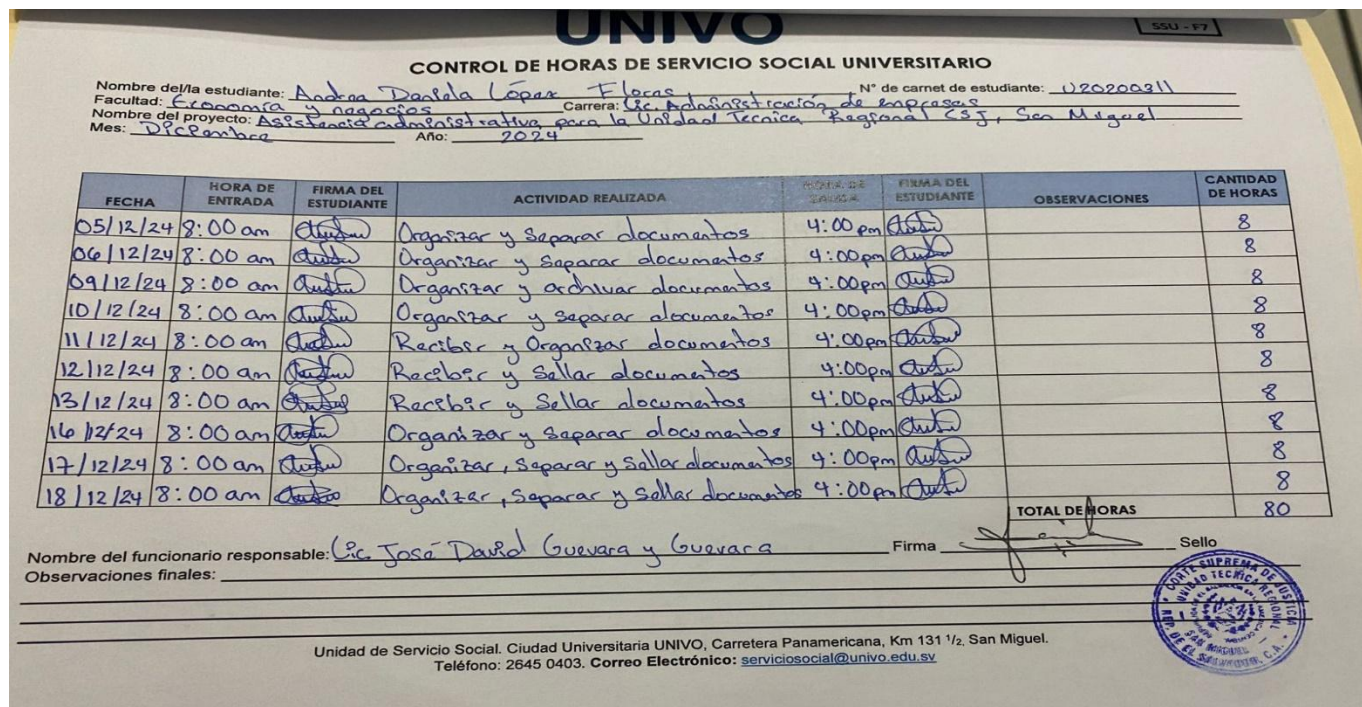 UNIVO
SSU - F7
CONTROL DE HORAS DE SERVICIO SOCIAL UNIVERSITARIO
Nombre del/la estudiante: Andrea Daniela López Flores N° de carnet de estudiante: U20200311
Facultad: Economía y negocios Carrera: Lic. Administración de empresas
Nombre del proyecto: Asistencia administrativa para la Unidad Tecnica Regional CSJ, San Miguel
Mes: Diciembre Año: 2024
FECHA HORA DE ENTRADA FIRMA DEL ESTUDIANTE ACTIVIDAD REALIZADA HORA DE SALIDA FIRMA DEL ESTUDIANTE OBSERVACIONES CANTIDAD DE HORAS
05/12/24 8:00 am Organizar y Separar documentos 4:00 pm 8
06/12/24 8:00 am Organizar y Separar documentos 4:00pm 8
09/12/24 8:00 am Organizar y archivar documentos 4:00pm 8
10/12/24 8:00 am Organizar y separar documentos 4:00pm 8
11/12/24 8:00 am Recibir y Organizar documentos 4:00pm 8
12/12/24 8:00 am Recibir y Sellar documentos 4:00pm 8
13/12/24 8:00 am Recibir y Sellar documentos 4:00pm 8
16/12/24 8:00 am Organizar y Separar documentos 4:00pm 8
17/12/24 8:00 am Organizar, Separar y Sellar documentos 4:00pm 8
18/12/24 8:00 am Organizar, Separar y Sellar documentos 4:00pm 8
TOTAL DE HORAS 80
Nombre del funcionario responsable: Lic José David Guevara y Guevara Firma Sello
Observaciones finales:
CORTE SUPREMA DE JUSTICIA
UNIDAD TECNICA REGIONAL
SAN MIGUEL
REP. DE EL SALVADOR, C.A.
Unidad de Servicio Social. Ciudad Universitaria UNIVO, Carretera Panamericana, Km 131 1/2, San Miguel.
Teléfono: 2645 0403. Correo Electrónico: serviciosocial@univo.edu.sv